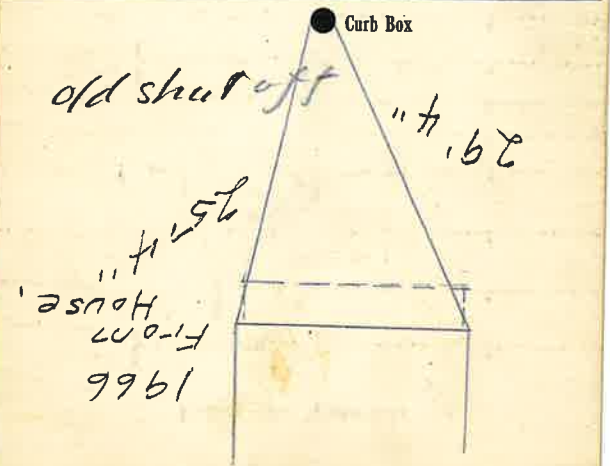 Curb Box
old shut off
29' 4"
25' 4"
1966
From
House